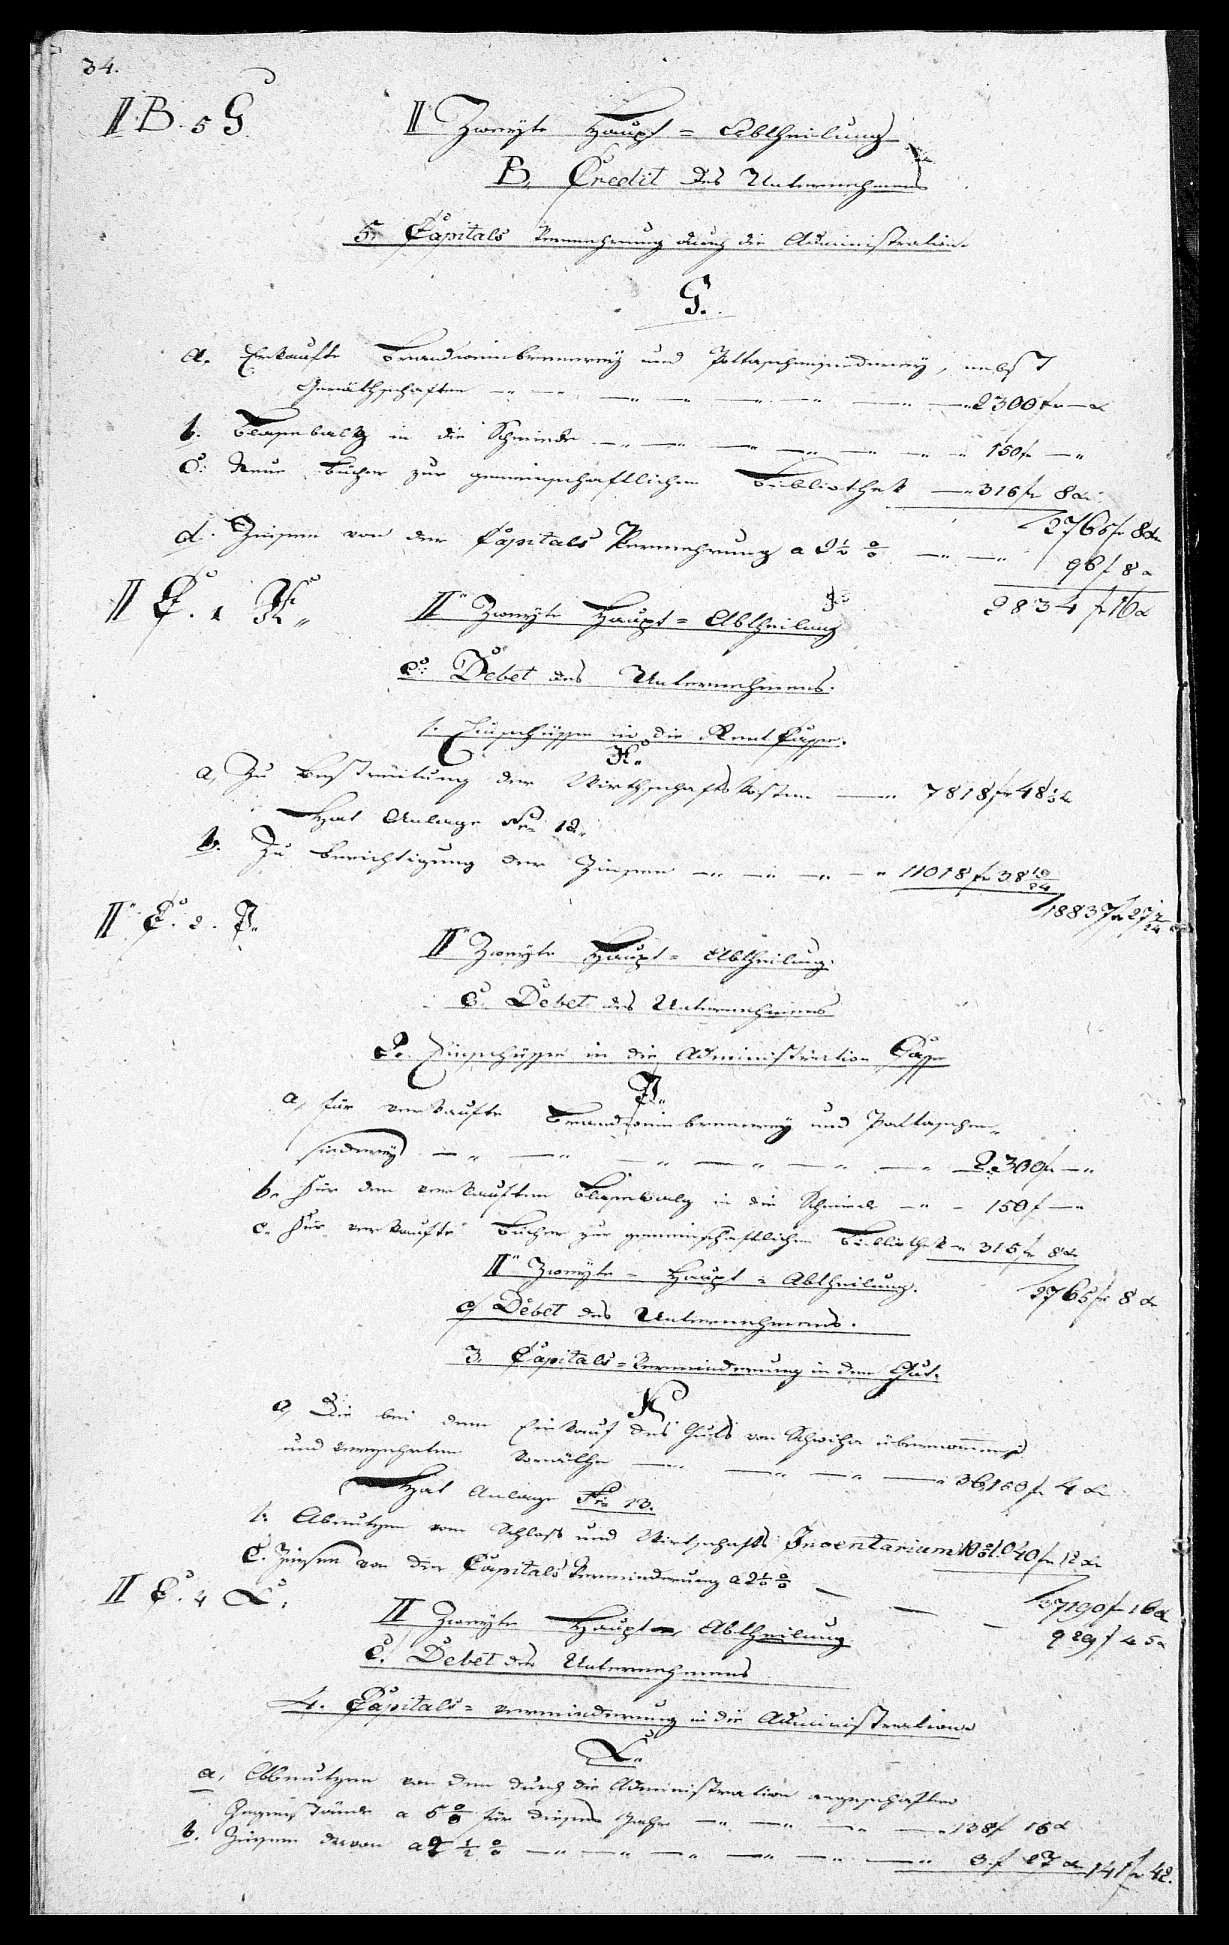 34.
II B. 5 G
II Zweyte Haupt = Abtheilung
B. Credit des Unternehmens
5. Capitals Vermehrung durch die Administration.
G.
a. Erkaufte Brandweinbrennerey und Pottaschensiederey, nebst
Geräthschaften — 2300 fr —
b. Blasebalg in die Schmiede — 150 fr —
c. Neue Bücher zur gemeinschaftlichen Bibliothek — 316 fr 8 x
2766 fr 8 x
d. Zinsen von der Capitals Vermehrung a 2½ % — 96 f 8 x
2834 fr 16 x
II C. 1
II Zweyte Haupt = Abtheilung
C. Debet des Unternehmens.
1. Einschüsse in die Rent Casse.
H.
a, Zu Bestreitung der Wirthschafts Kosten — 7818 fr 48½ x
Hat Anlage Nr 12.
b. Zu Berichtigung der Zinsen — 11018 fr 38 19/24
18837 fr 27 7/24
II C. 2. J.
II Zweyte Haupt = Abtheilung.
C. Debet des Unternehmens
2. Einschüsse in die Administration Casse
J.
a, für verkaufte Brandweinbrennerey und Pottaschen
siederey — 2300 fr —
b. Für den verkauften Blasebalg in die Schmiede — 150 f —
c. Für verkaufte Bücher zur gemeinschaftlichen Bibliothek 315 fr 8 x
2765 fr 8 x
II Zweyte = Haupt = Abtheilung.
C Debet des Unternehmens.
3. Capitals = Verminderung in dem Gut.
K
a, Die bei dem Einkauf des Guts von Schwiha übernommene
und verzehrten Vorräthe — 36,150 fr 4 x
Hat Anlage Nr 13.
b. Abnutzen vom Schloss und Wirtschafts Inventarium 10% 1040 fr 12 x
37190 f 16 x
C. Zinsen von der Capitals Verminderung a 2½ % — 929 f 45 x
II C. 4 L.
II Zweyte Haupt = Abtheilung
C. Debet des Unternehmens
4. Capitals = verminderung in die Administration
L.
a, Abbnutzen von den durch die Administration angeschaften
Gegenstände a 5 % für dieses Jahr — 138 f 15 x
b. Zinsen davon a 2½ % — 3 f 27 x 141 fr 42.